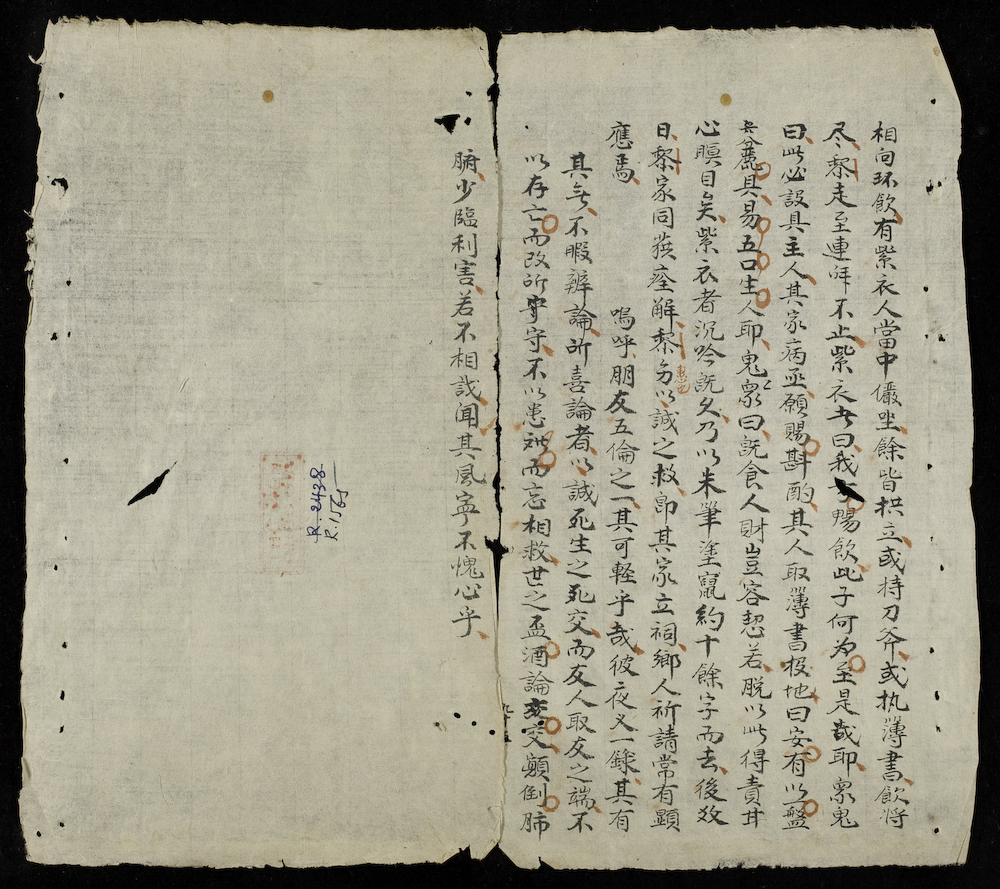 相向环飲有紫衣人當中儼坐餘皆拱立或持刀斧或执薄書飲将
尽黎走至連拜不止紫衣者曰我方暢飲此子何为至是哉耶衆鬼
曰此必設具主人其家病亟願賜斟酌其人取薄書极地曰安有以盤
具易五口生人耶鬼衆曰既食人財豈容恝若脱以此得責甘
心瞑目矣紫衣者沉吟既久乃以朱筆塗竄約十餘字而去後数
日黎家同𤻞痊解黎匆以誠之救即其家立祠鄉人祈請常有顕
應焉
嗚呼朋友五倫之一其可軽乎哉彼夜叉一錄其有
其無不暇辨論所喜論者以誠死生之死交而友人取友之端不
以存亡而改所守不以患难而忘相救世之盃酒論交交顛倒肺
腑少臨利害若不相識闻其風寧不愧心乎
R.2438
R.1765